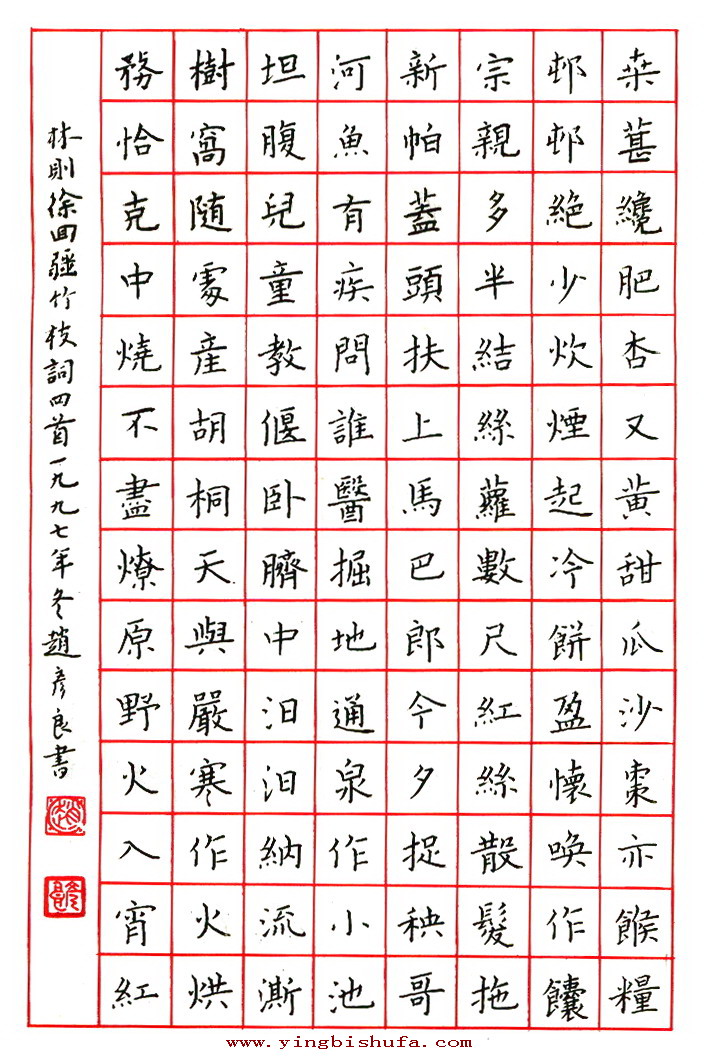 桒葚纔肥杏又黄甜瓜沙棗亦餱糧
邨邨絶少炊煙起冷餅盈懷喚作饢
宗親多半結絲蘿數尺紅絲散髮拖
新帕蓋頭扶上馬巴郎今夕捉秧哥
河魚有疾問誰醫掘地通泉作小池
坦腹兒童教偃卧臍中汩汩納流澌
樹窩随處産胡桐天與嚴寒作火烘
務恰克中燒不盡燎原野火入宵紅
林則徐回疆竹枝詞四首一九九七年冬趙彥良書
www.yingbishufa.com